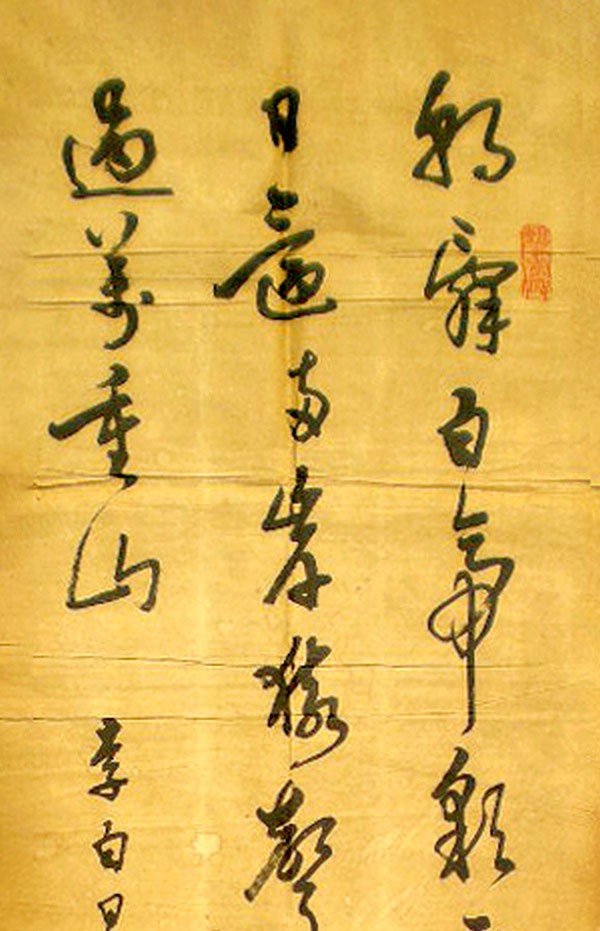 朝辭白帝彩
日還兩岸猿聲
過萬重山
李白